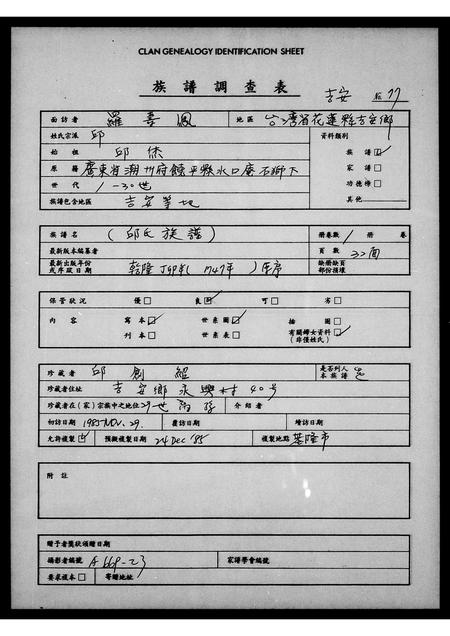 CLAN GENEALOGY IDENTIFICATION SHEET
族 譜 調 查 表
吉安 77
面訪者 羅 鳳 地區 台灣省花蓮縣吉安鄉
姓氏宗派 邱 資料類別
始祖 邱 族譜☑
原籍 廣東省潮州府饒平縣水口 石獅下 家譜□
世代 1-30世 功德榜□
族譜包含地區 吉安等地 其他
族譜名 (邱氏族譜) 冊卷數 1 冊 卷
最新版本編纂者 頁數 32面
最新出版年份或序跋日期 乾隆丁卯年(1747年)序 缺冊缺頁部份損壞
保管狀況 優□ 良☑ 可□ 劣□
內容 寫本☑ 世系圖☑ 插圖□ 有關婦女資料☑(非僅姓氏)
刊本□ 世系表□
珍藏者 邱創 是否列入本族譜
珍藏者住址 吉安鄉永興村40号
珍藏者在(家)宗族中之地位 29世裔孫 介紹者
初訪日期 1985 NOV. 29. 覆訪日期 增訪日期
允許複製☑ 預擬複製日期 24 Dec '85 複製地點 基隆市
附註
贈予者獎狀頒贈日期
攝影者編號 A669-23 家譜學會編號
要求複本□ 寄贈地址